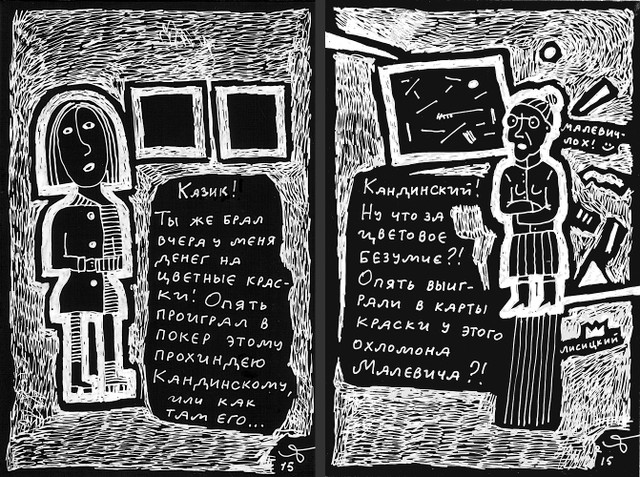 Казик!
Ты же брал
вчера у меня
денег на
цветные крас-
ки! Опять
проиграл в
покер этому
прохиндею
Кандинскому,
или как
там его...
15
Малевич-
лох!
Кандинский!
Ну что за
цветовое
безумие?!
Опять выиг-
рали в карты
краски у этого
охломона
Малевича?!
Лисицкий
15